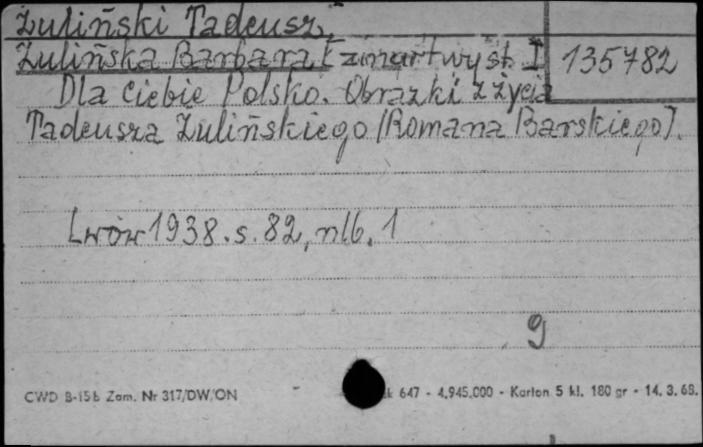 Żuliński Tadeusz,
Żulińska Barbara, zmartwyst. I 135782
Dla Ciebie Polsko. Obrazki z życia
Tadeusza Żulińskiego /Romana Barskiego/.
Lwów 1938. s. 82, nlb. 1
g
CWD B-15b Zam. Nr 317/DW/ON 647 - 4.945.000 - Karton 5 kl. 180 gr - 14. 3. 68.